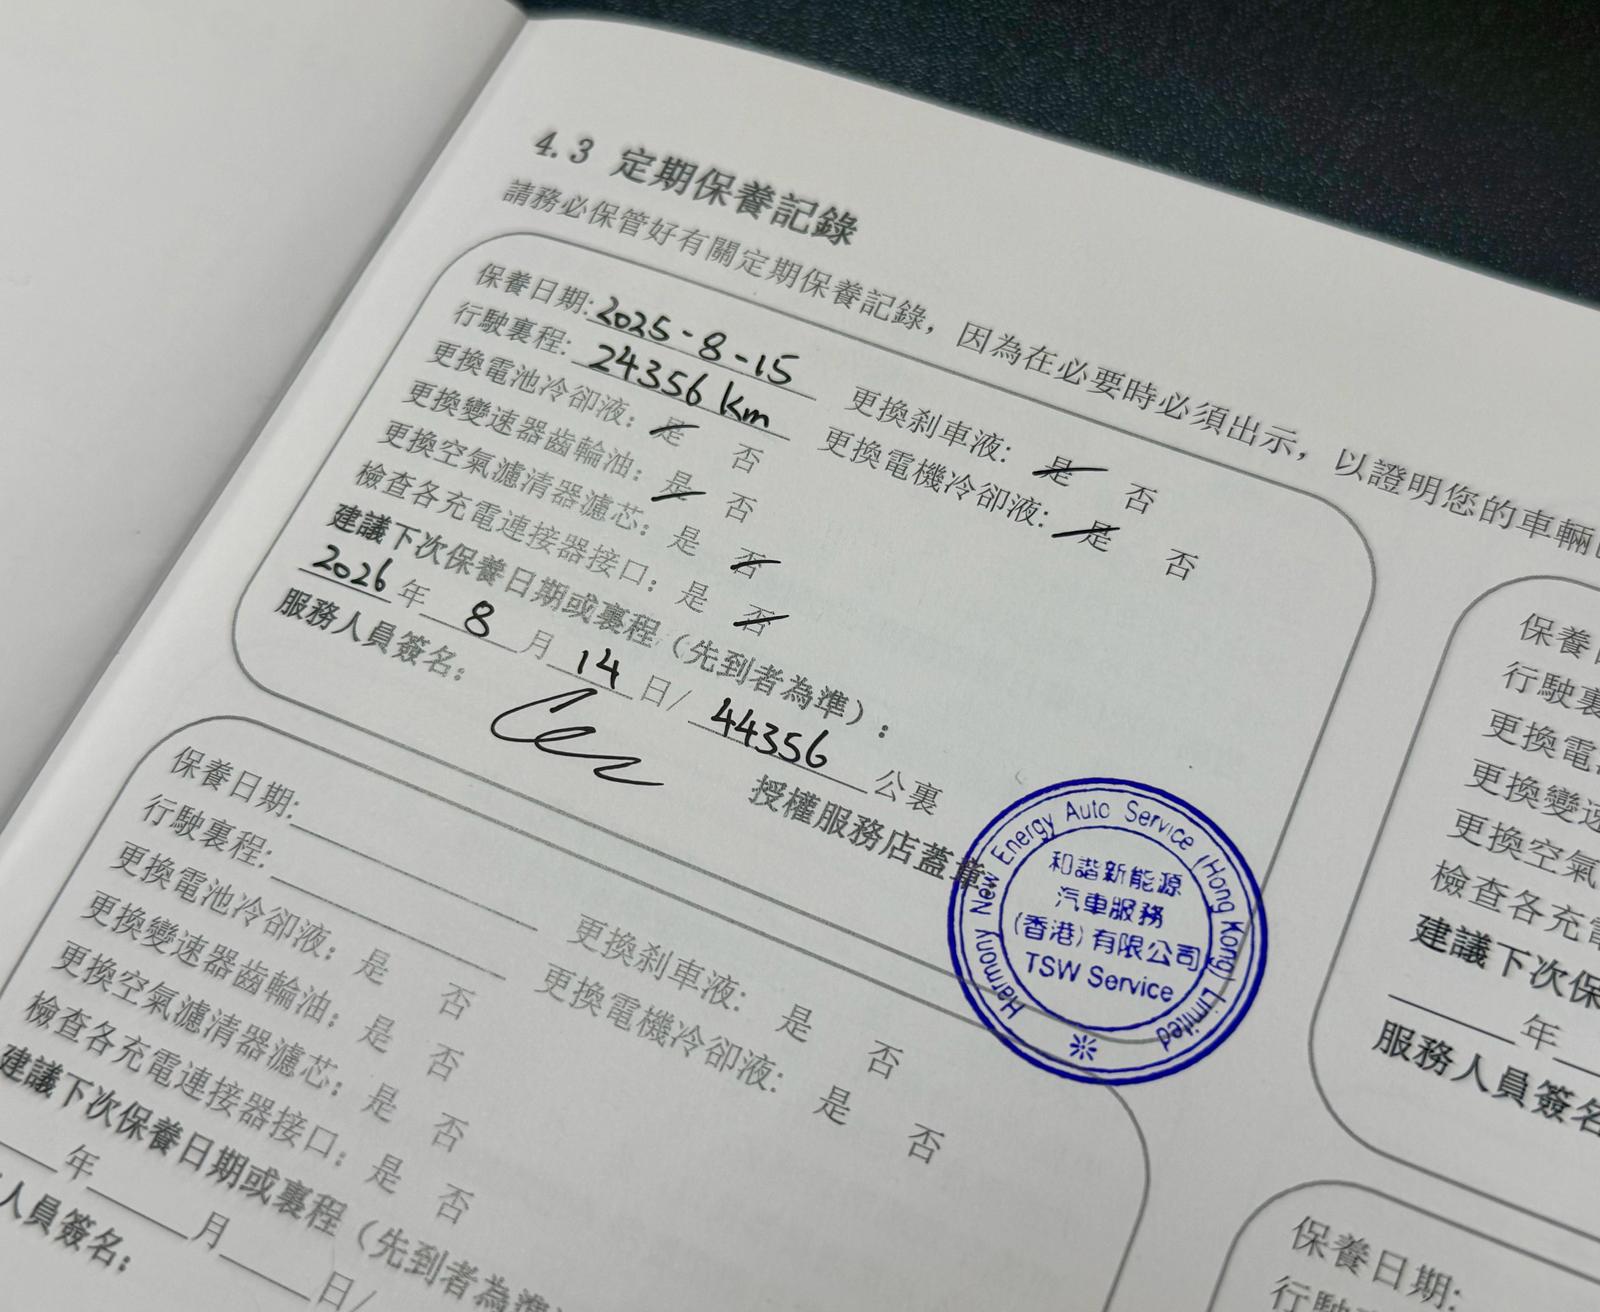 4.3 定期保養記錄
請務必保管好有關定期保養記錄，因為在必要時必須出示，以證明您的車輛
保養日期: 2025-8-15
行駛裏程: 24356 km 更換剎車液: 是 否
更換電池冷卻液: 是 否 更換電機冷卻液: 是 否
更換變速器齒輪油: 是 否
更換空氣濾清器濾芯: 是 否
檢查各充電連接器接口: 是 否
建議下次保養日期或裏程（先到者為準）:
2026 年 8 月 14 日/ 44356 公裏
服務人員簽名:
授權服務店蓋章
Harmony New Energy Auto Service (Hong Kong) Limited
和諧新能源
汽車服務
(香港)有限公司
TSW Service
保養日期:
行駛裏程:
更換電池冷卻液: 是 否 更換剎車液: 是 否
更換變速器齒輪油: 是 否 更換電機冷卻液: 是 否
更換空氣濾清器濾芯: 是 否
檢查各充電連接器接口: 是 否
建議下次保養日期或裏程（先到者為準
年 月 日/
人員簽名:
保養
行駛裏
更換電
更換變速
更換空氣
檢查各充電
建議下次保
年
服務人員簽名
保養日期:
行駛裏程